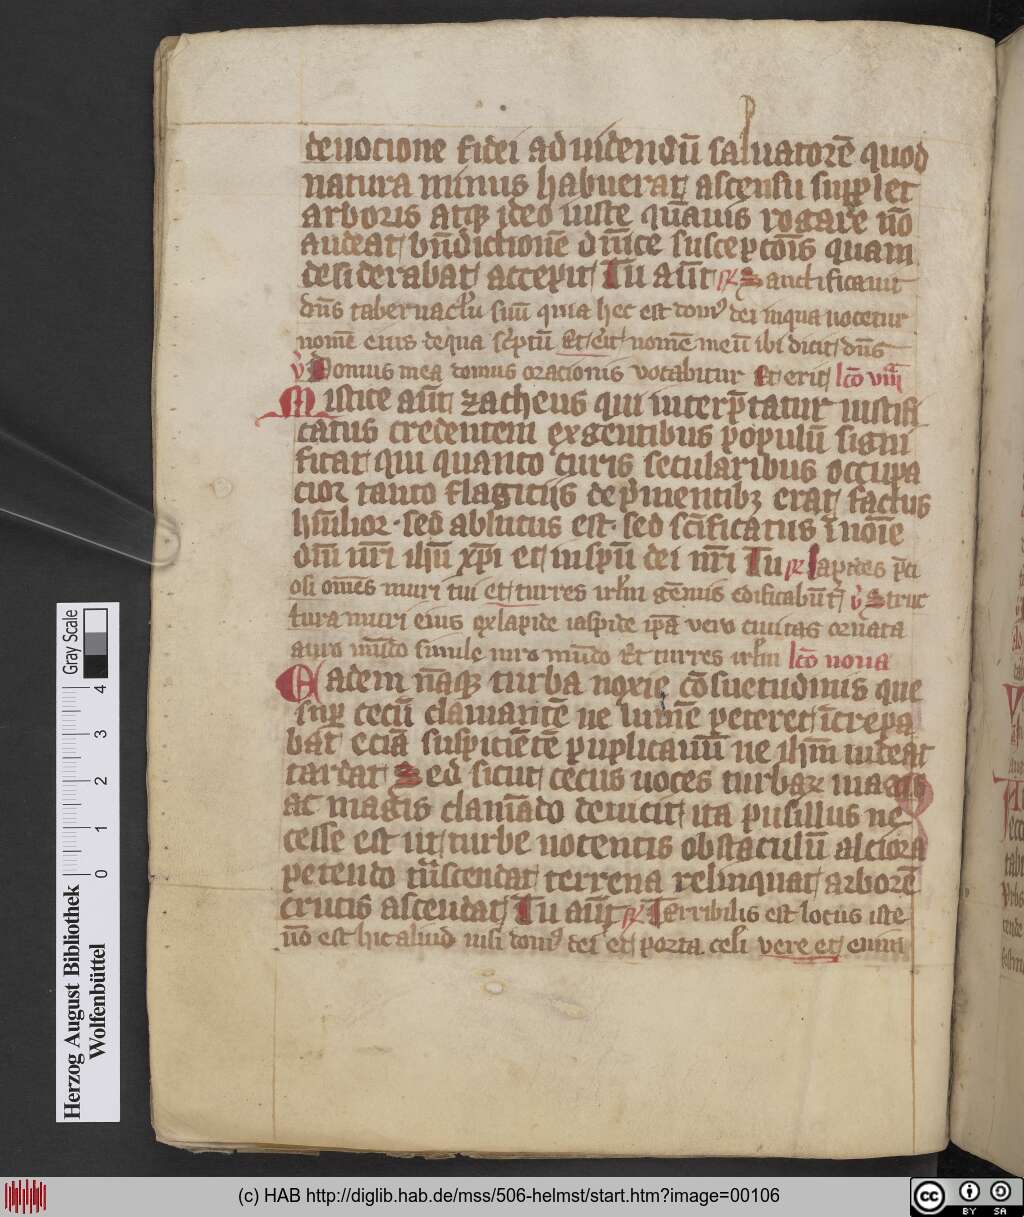 deuocione fidei ad uidendū saluatorē quod
natura minus habuerat ascensu supplet
arboris atq ideo iuste quāuis rogare nō
audeat bn̄dictionē dn̄ice suscepcōis quam
desiderabat accepit Tu aūt Sanctificauit
dn̄s tabernaclu suū quia hec est dom9 dei in qua uocetur
nomē eius de qua sc̄ptū Et erit nomē meū ibi dicit dn̄s
Domus mea domus oracionis vocabitur Et erit lcō viii
Mistice aūt zacheus qui interp̄tatur iustifi
catus credentem ex gentibus populū signi
ficat qui quanto curis secularibus occupa
cior tanto flagitiis dep̄mentibȝ erat factus
hūilior sed ablutus est sed sc̄ificatus ī noīe
dn̄i nr̄i ihū xp̄i et in spū dei nr̄i Tu lapides p̄ci
osi om̄es muri tui et turres irl̄m gēmis edificabūt̄ Struc
tura muri eius ex lapide iaspide ip̄a vero ciuitas ornata
auro mūdo simile uiro mūdo Et turres irl̄m lcō nona
Eadem nāq turba noxie cōsuetudinis que
sup cecū clamantē ne lumē peteret īcrepa
bat eciā suspiciētē puplicanū ne ihm̄ uideat
tardat Sed sicut cecus uoces turbaꝝ magis
ac magis clamādo deuicit ita pusillus ne
cesse est ut turbe nocentis obstaculū alciora
petendo trāscendat terrena relinquat arborē
crucis ascendat Tu aūt Terribilis est locus iste
nō est hic aliud nisi dom9 dei et porta celi vere et enim
Herzog August Bibliothek
Wolfenbüttel
0 1 2 3 4
Gray Scale
(c) HAB http://diglib.hab.de/mss/506-helmst/start.htm?image=00106
cc BY SA